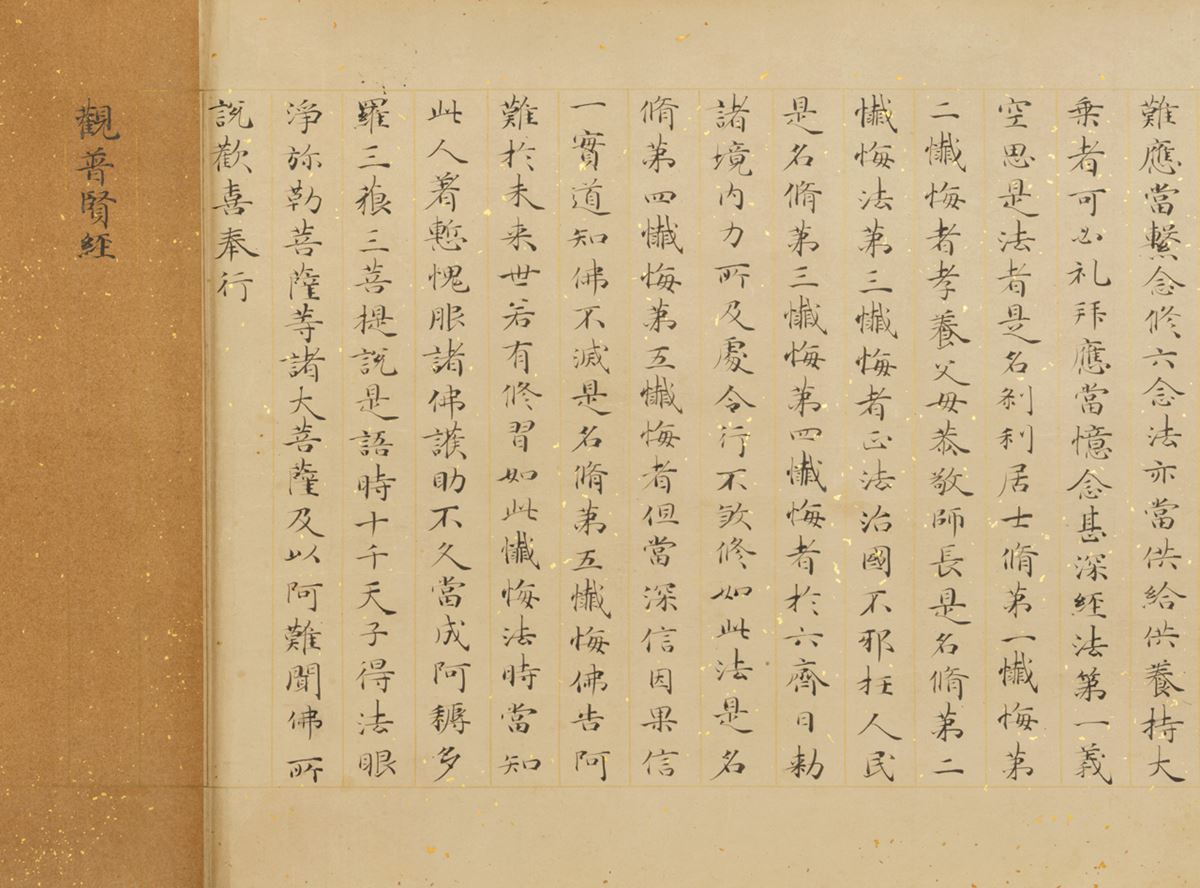 難應當繫念修六念法亦當供給供養持大
乗者可必礼拜應當憶念甚深経法第一義
空思是法者是名刹利居士脩第一懺悔第
二懺悔者孝養父母恭敬師長是名脩第二
懺悔法第三懺悔者正法治國不邪抂人民
是名脩第三懺悔第四懺悔者於六齊日勑
諸境内力所及處令行不煞修如此法是名
脩第四懺悔第五懺悔者但當深信因果信
一實道知佛不滅是名脩第五懺悔佛告阿
難於未来世若有修習如此懺悔法時當知
此人著慙愧服諸佛護助不久當成阿耨多
羅三藐三菩提説是語時十千天子得法眼
淨弥勒菩薩等諸大菩薩及以阿難聞佛所
説歡喜奉行
觀普賢経